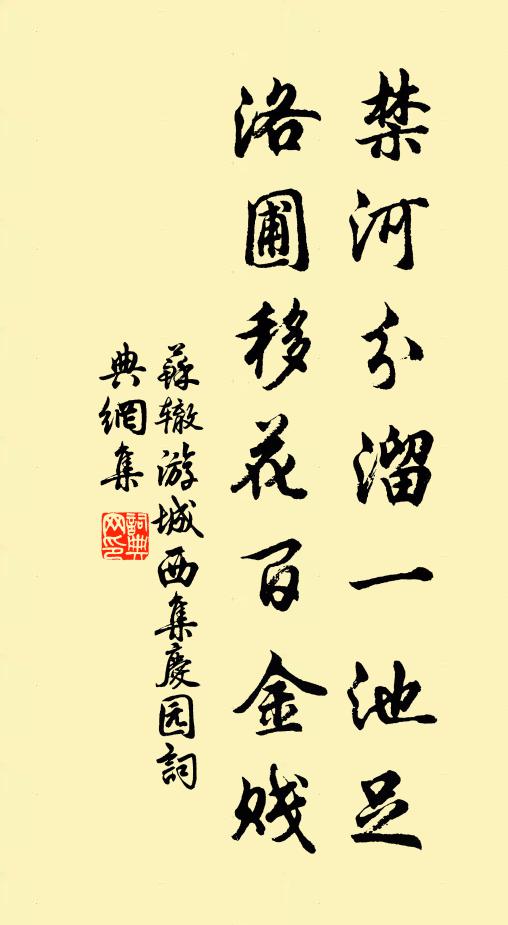 禁河分溜一池足
洛圃移花百金贱
蘇辙游城西集慶园詞
典網集
詞典网印